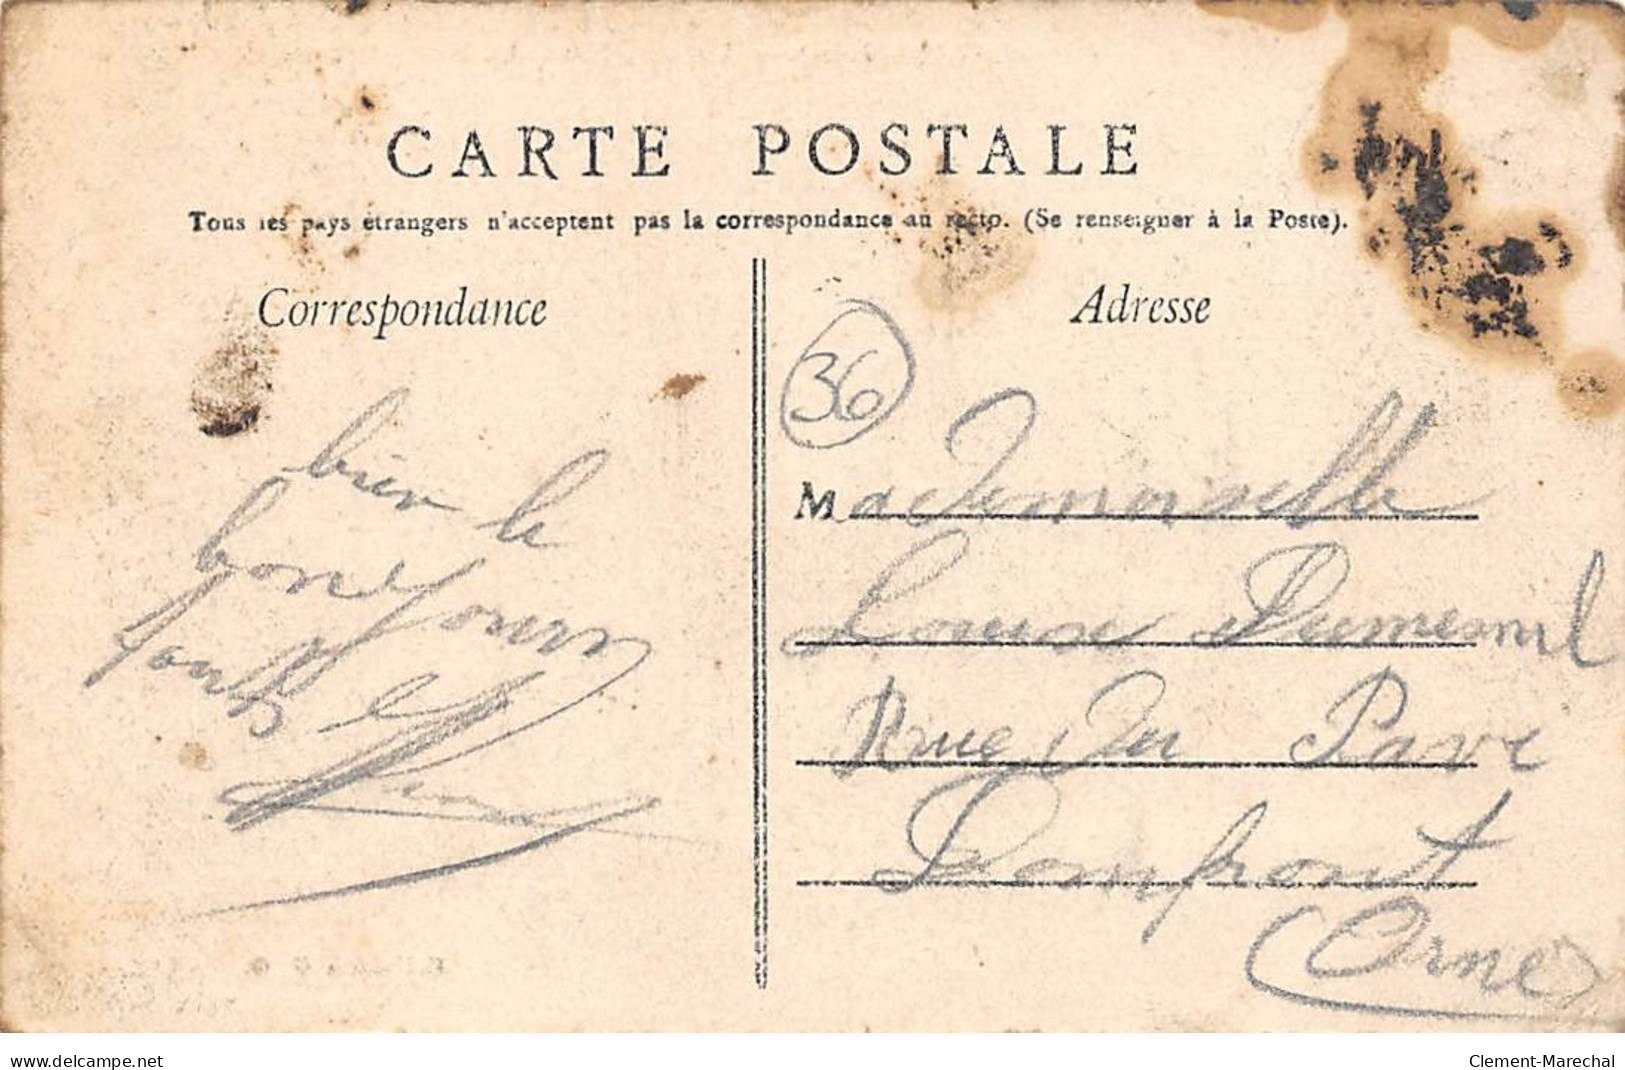 CARTE POSTALE
Tous les pays étrangers n'acceptent pas la correspondance au recto. (Se renseigner à la Poste).
Correspondance
bien le
bone Jours
Adresse
36
Mademoiselle
Louise Dumesnil
Rue Du Pavé
Domfront
(Orne)
delcampe.net
Clement-Marechal